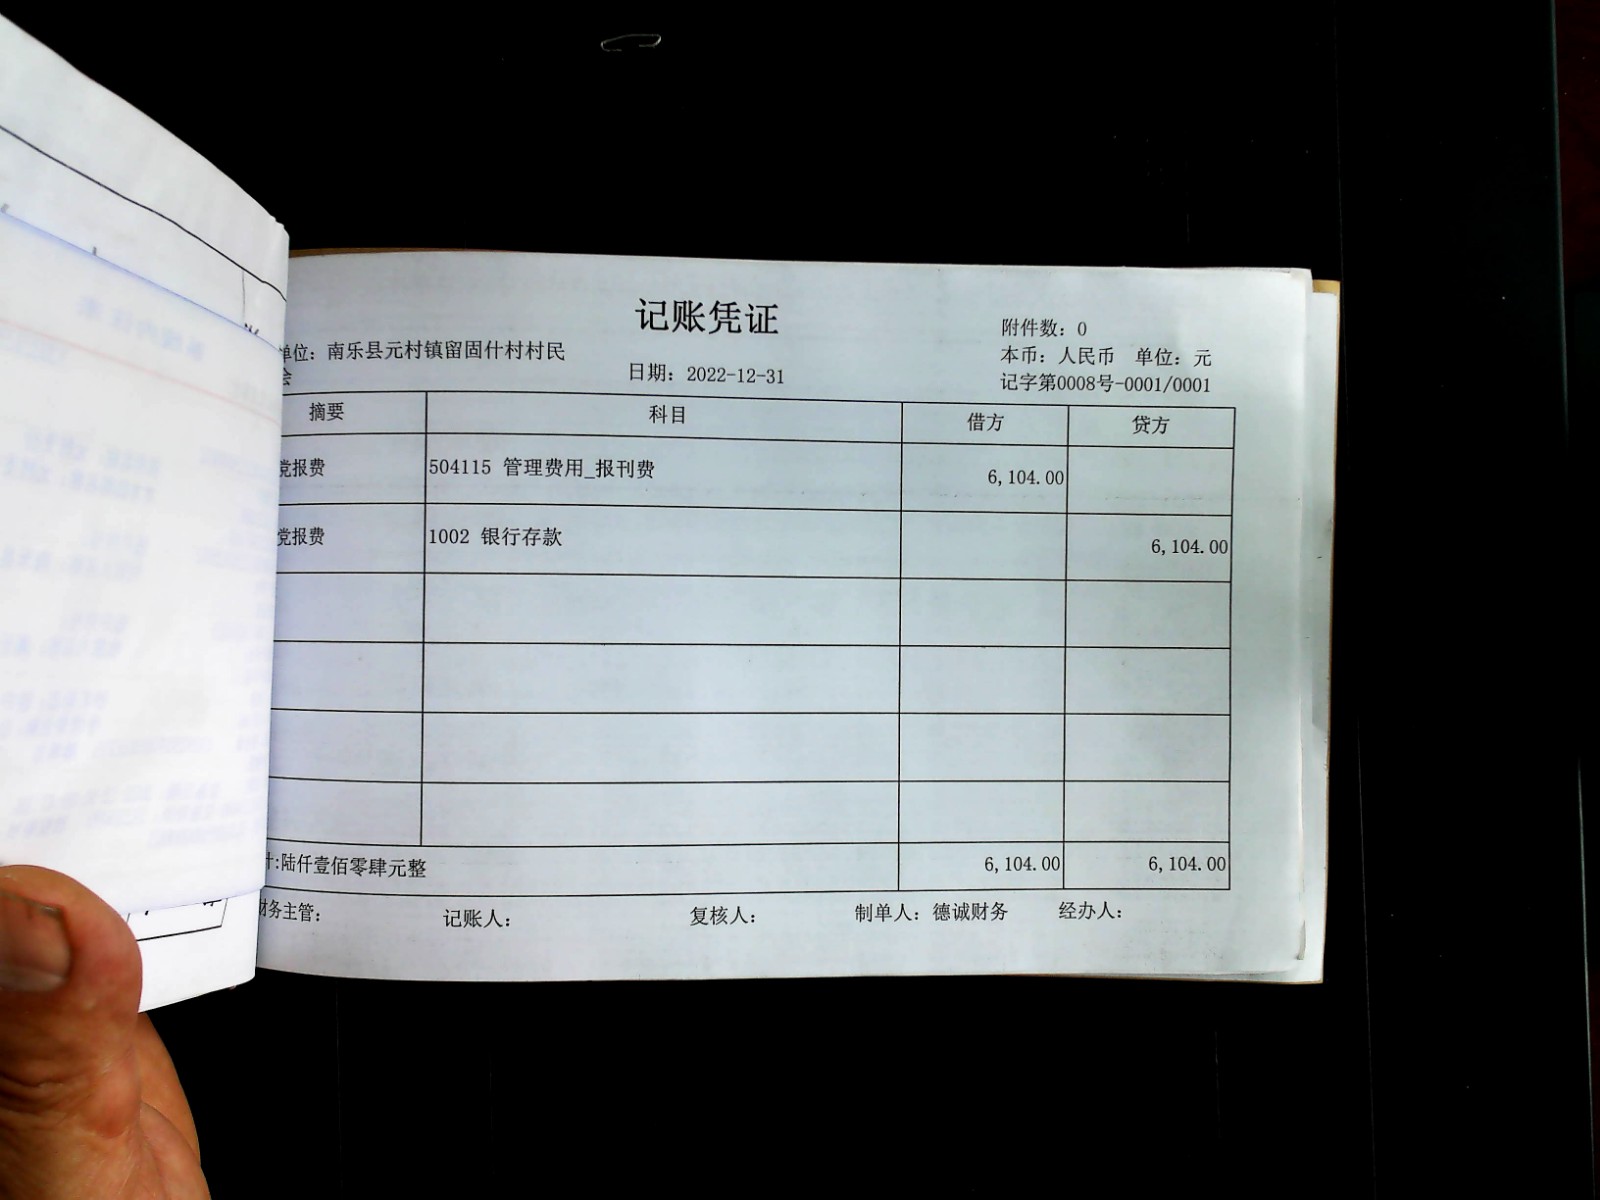 记账凭证
附件数：0
单位：南乐县元村镇留固什村村民
会
本币：人民币 单位：元
日期：2022-12-31
记字第0008号-0001/0001
摘要 科目 借方 贷方
党报费 504115 管理费用_报刊费 6,104.00
党报费 1002 银行存款 6,104.00
计:陆仟壹佰零肆元整 6,104.00 6,104.00
财务主管： 记账人： 复核人： 制单人：德诚财务 经办人：